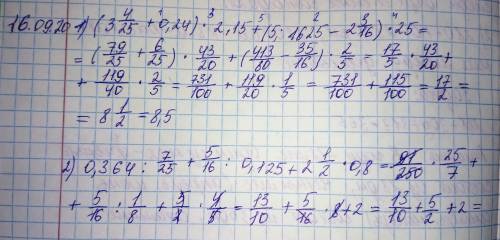 16.09.20 1) (3 4/25 + 0,24) · 2,15 + (5,1625 - 2 3/16) · 25 =
= (79/25 + 6/25) · 43/20 + (413/80 - 35/16) · 2/5 = 17/5 · 43/20 +
+ 119/40 · 2/5 = 731/100 + 119/20 · 1/5 = 731/100 + 119/100 = 17/2 =
= 8 1/2 = 8,5
2) 0,364 : 7/25 + 5/16 : 0,125 + 2 1/2 · 0,8 = 91/250 · 25/7 +
+ 5/16 : 1/8 + 5/2 · 4/5 = 13/10 + 5/16 · 8 + 2 = 13/10 + 5/2 + 2 =